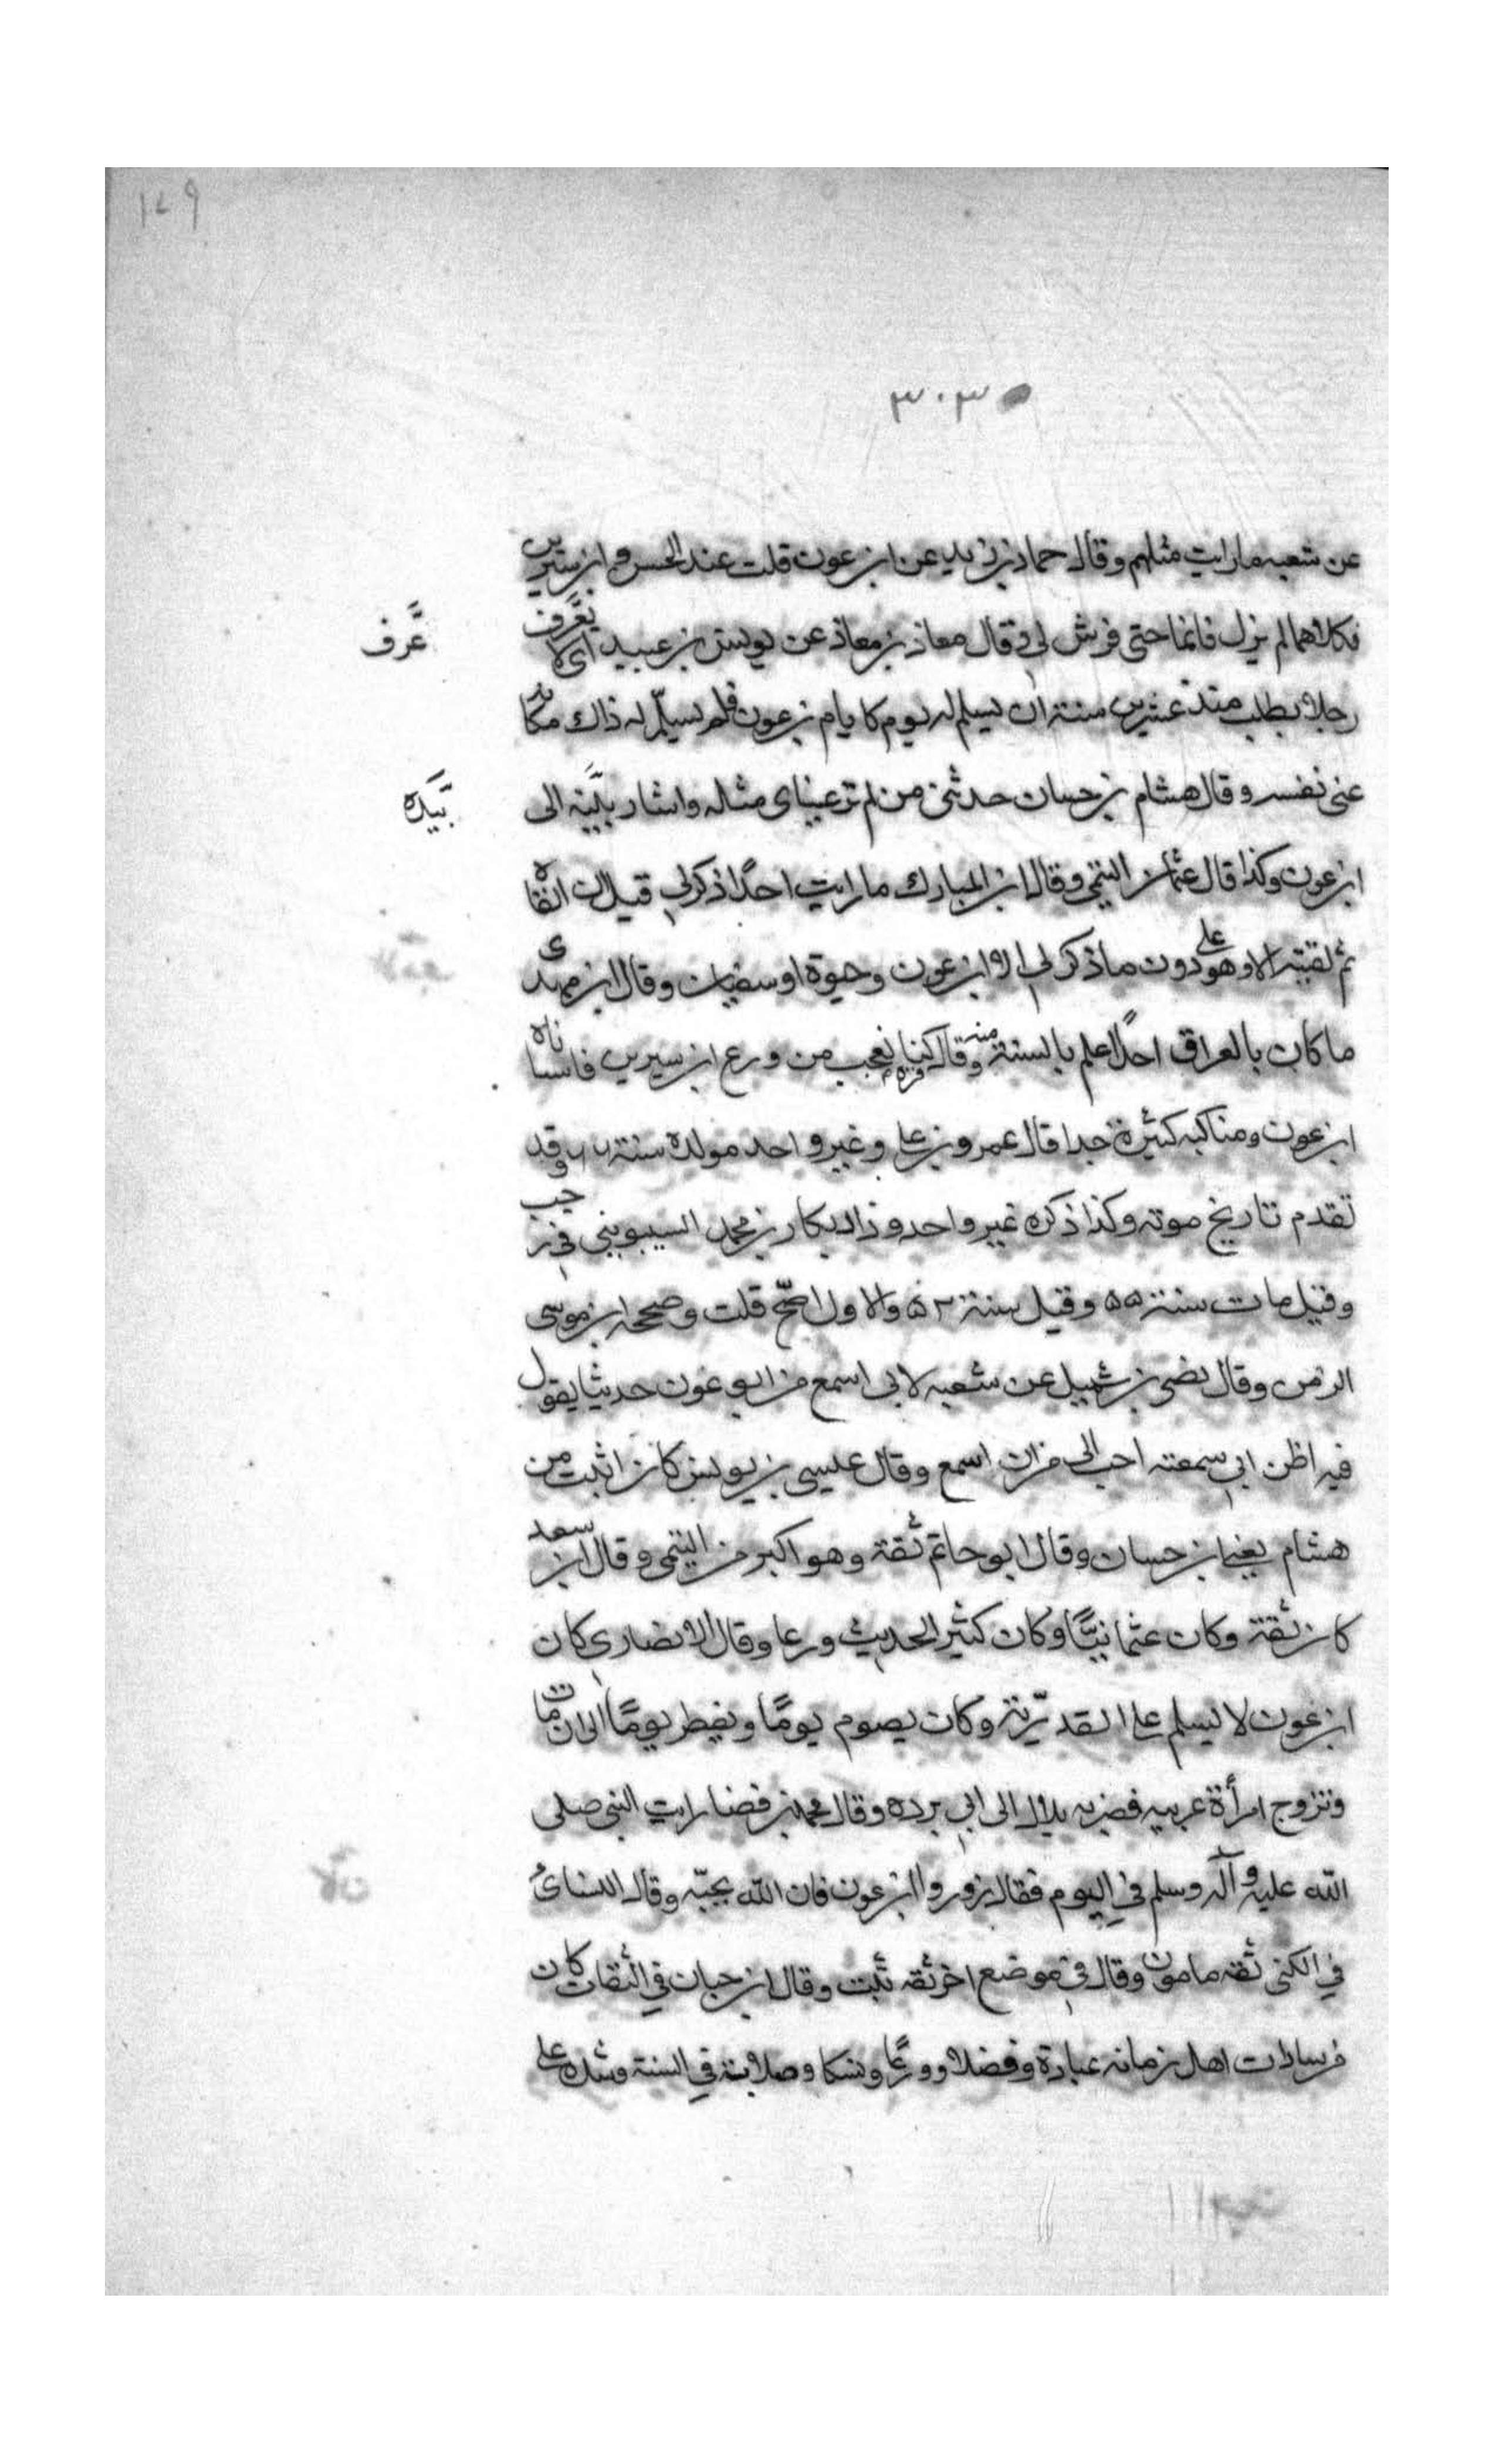 ١٤٩
٣٠٣
عن شعبه مارايت مثلهم وقال حماد بن زيد عن ابن عون قلت عند الحسن وابن سيرين
فكلاهما لم يزل قائما حتى فرش لي وقال معاذ بن معاذ عن يونس بن عبيد اى لا يعرف
عرف
رجلا يطلب منذ عشرين سنة ان يسلم له يوم كايام بن عون فلم يسلم له ذاك
عنى نفسه وقال هشام بن حسان حدثني من لم تر عيناى مثله واشار بيده الى
بيده
ابن عون وكذا قال عثمان التيمي وقال ابن المبارك ما رايت احدا ذكر لي قبل ان القاه
ثم لقيته الا وهو على دون ما ذكر لي الا ابن عون وحيوة او سفيان وقال ابن مهدى
ما كان بالعراق احدا علم بالسنة منه وقال كنا نعجب من ورع ابن سيرين فانساناه
ابن عون ومناكبه كثيرة جدا قال عمرو بن على وغير واحد مولده سنة ٦٦ وقد
تقدم تاريخ موته وكذا ذكره غير واحد وزاد بكار بن محمد السيبويني في رجب
وقيل مات سنة ٥٥ وقيل سنة ٥٢ والاول اصح قلت وصححه ابن موسى
الزمن وقال نضر بن شميل عن شعبه لاني اسمع من ابو عون حديثا يقول
فيه اظن اني سمعته احب الى من ان اسمع وقال عيسى بن يونس كان اثبت من
هشام يعني ابن حسان وقال ابو حاتم ثقة وهو اكبر من التيمي وقال ابن سعد
كان ثقة وكان عثمانيا وكان كثير الحديث ورعا وقال الانصارى كان
ابن عون لا يسلم على القدرية وكان يصوم يوما ويفطر يوما الى ان مات
وتزوج امرأة عربيه فضربه بلال الى ابي برده وقال محمد بن فضا رايت النبي صلى
الله عليه وآله وسلم في اليوم فقال زوروا ابن عون فان الله يحبه وقال النسائى
في الكنى ثقه مامون وقال في موضع اخر ثقه ثبت وقال ابن حبان في الثقات كان
من سادات اهل زمانه عبادة وفضلا وورعا ونسكا وصلابة في السنة وشدة على